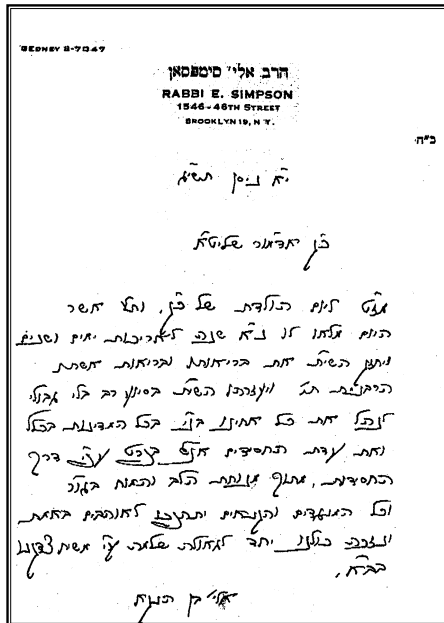 GEDNEY 8-7047
הרב אלי' סימפסאן
RABBI E. SIMPSON
1546-46TH STREET
BROOKLYN 19, N. Y.
ב"ה
י"א ניסן תשי"ג
כ"ק אדמו"ר שליט"א
מז"ט ליום הולדת של כ"ק, אשר
היום מלאו לו נ"א שנה לאריכות ימים ושנים
ויתן השי"ת את בריאותו ובריאות אשתו
הרבנית תחי' ויעזרהו השי"ת בסיוע רב בלי גבול
לנהל את כל אחינו בנ"י בכל המדינות בכלל
ואת עדת החסידים בפרט עפ"י דרך
החסידות, מתוך מנוחת הלב והמוח
וכל המנגדים יתהפכו לאוהבים באמת
ונזכה כולנו יחד לגאולה שלמה ע"י משיח צדקנו
בב"א,
אלי' בן